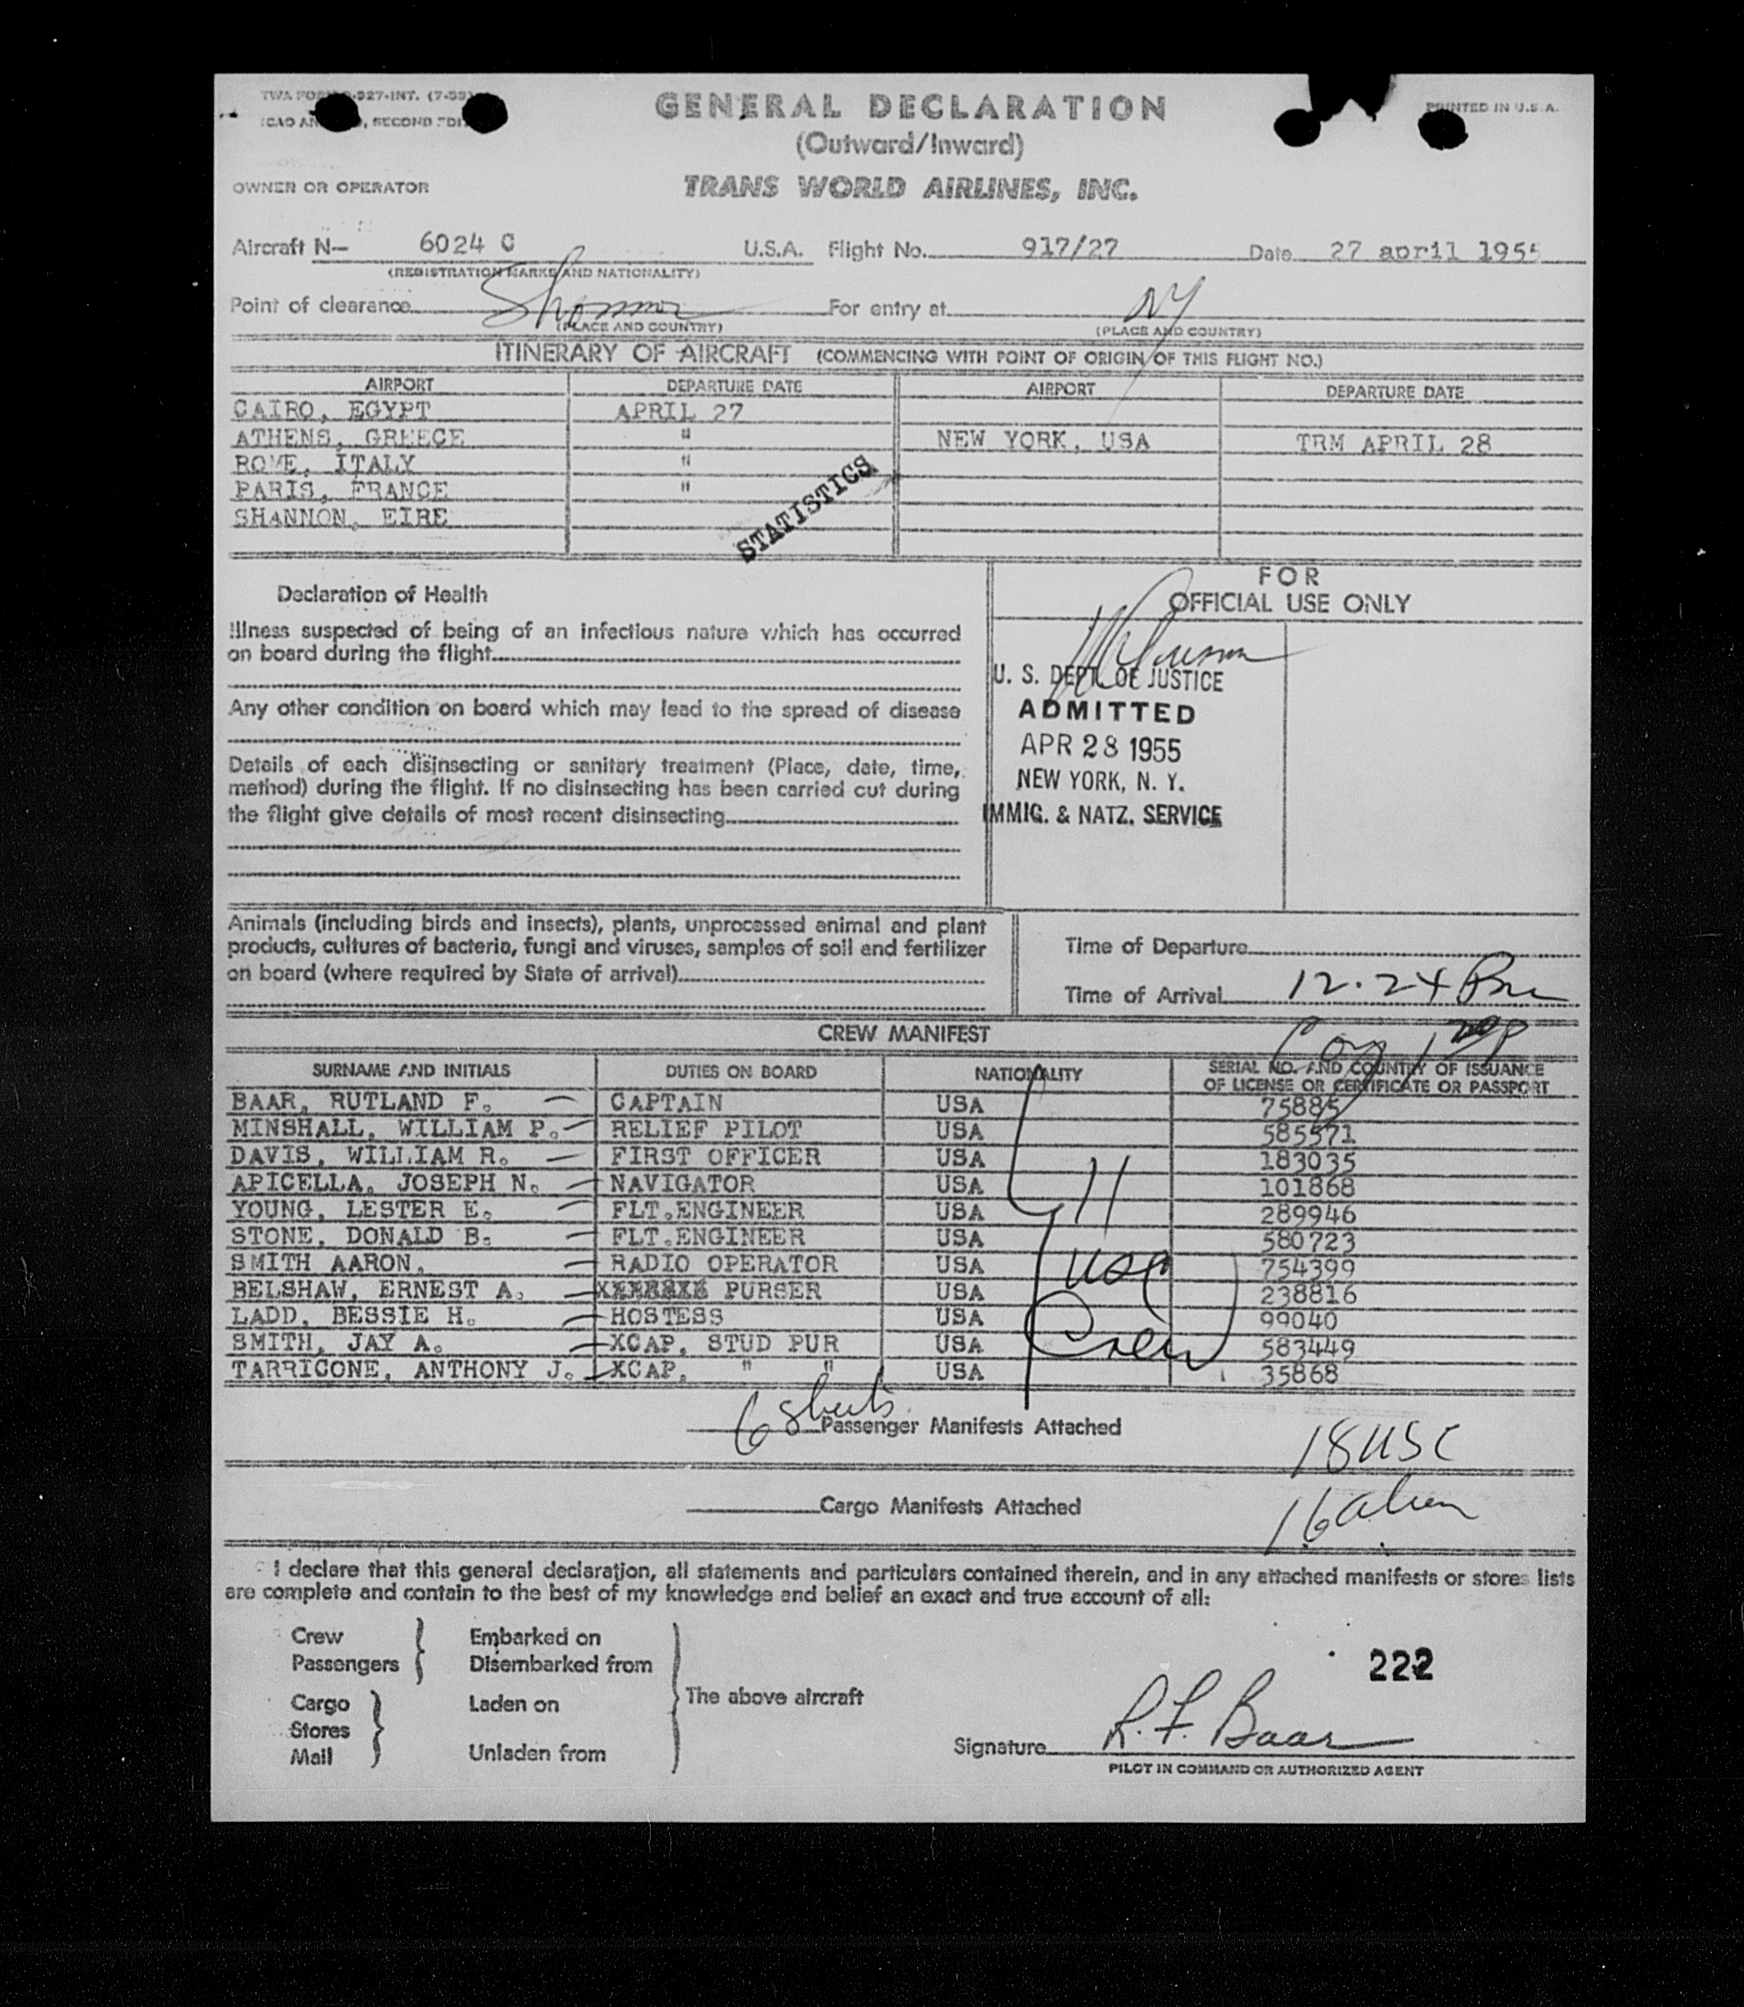 TWA FO 927-INT. (7-53)
ICAO AN , SECOND EDI
GENERAL DECLARATION
PRINTED IN U.S.A.
(Outward/Inward)
OWNER OR OPERATOR
TRANS WORLD AIRLINES, INC.
Aircraft N— 6024 C U.S.A. Flight No. 917/27 Date 27 april 1955
(REGISTRATION MARKS AND NATIONALITY)
Point of clearance Shannon For entry at NY
(PLACE AND COUNTRY) (PLACE AND COUNTRY)
ITINERARY OF AIRCRAFT (COMMENCING WITH POINT OF ORIGIN OF THIS FLIGHT NO.)
AIRPORT DEPARTURE DATE AIRPORT DEPARTURE DATE
CAIRO, EGYPT APRIL 27
ATHENS, GREECE " NEW YORK, USA TRM APRIL 28
ROME, ITALY "
PARIS, FRANCE "
SHANNON, EIRE
STATISTICS
Declaration of Health
Illness suspected of being of an infectious nature which has occurred
on board during the flight
Any other condition on board which may lead to the spread of disease
Details of each disinsecting or sanitary treatment (Place, date, time,
method) during the flight. If no disinsecting has been carried out during
the flight give details of most recent disinsecting
FOR
OFFICIAL USE ONLY
U. S. DEPT. OF JUSTICE
ADMITTED
APR 28 1955
NEW YORK, N. Y.
IMMIG. & NATZ. SERVICE
Animals (including birds and insects), plants, unprocessed animal and plant
products, cultures of bacteria, fungi and viruses, samples of soil and fertilizer
on board (where required by State of arrival)
Time of Departure
Time of Arrival 12.24 Pm
CREW MANIFEST
SURNAME AND INITIALS DUTIES ON BOARD NATIONALITY SERIAL NO. AND COUNTRY OF ISSUANCE
OF LICENSE OR CERTIFICATE OR PASSPORT
BAAR, RUTLAND F. CAPTAIN USA 75885
MINSHALL, WILLIAM P. RELIEF PILOT USA 585571
DAVIS, WILLIAM R. FIRST OFFICER USA 183035
APICELLA, JOSEPH N. NAVIGATOR USA 101868
YOUNG, LESTER E. FLT.ENGINEER USA 289946
STONE, DONALD B. FLT.ENGINEER USA 580723
SMITH AARON, RADIO OPERATOR USA 754399
BELSHAW, ERNEST A. PURSER USA 238816
LADD, BESSIE H. HOSTESS USA 99040
SMITH, JAY A. XCAP, STUD PUR USA 583449
TARRICONE, ANTHONY J. XCAP, " " USA 35868
11
USC
Crew
6 sheets Passenger Manifests Attached
18 USC
Cargo Manifests Attached
16 alien
I declare that this general declaration, all statements and particulars contained therein, and in any attached manifests or stores lists
are complete and contain to the best of my knowledge and belief an exact and true account of all:
Crew Embarked on
Passengers Disembarked from
Cargo Laden on
Stores
Mail Unladen from
The above aircraft
222
Signature R. F. Baar
PILOT IN COMMAND OR AUTHORIZED AGENT